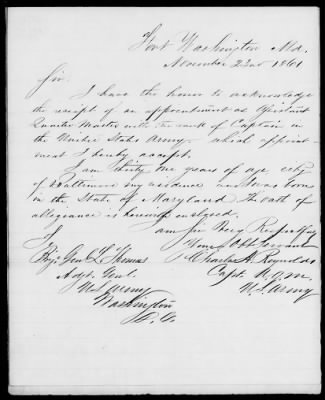 Fort Washington Md.
November 22nd 1861
Sir.
I have the honor to acknowledge
the receipt of an appointment as Assistant
Quarter Master with the rank of Captain in
the United States Army. which appoint-
ment I hereby accept.
I am thirty one years of age city
of Baltimore my residence and was born
in the State of Maryland The oath of
allegiance is herewith enclosed.
I am Sir Very Respectfully
Your Obt Servant
Charles A. Reynolds
Capt. A.Q.M.
U.S. Army
Brig. Genl. L. Thomas
Adgt. Genl.
U.S. Army
Washington
D.C.